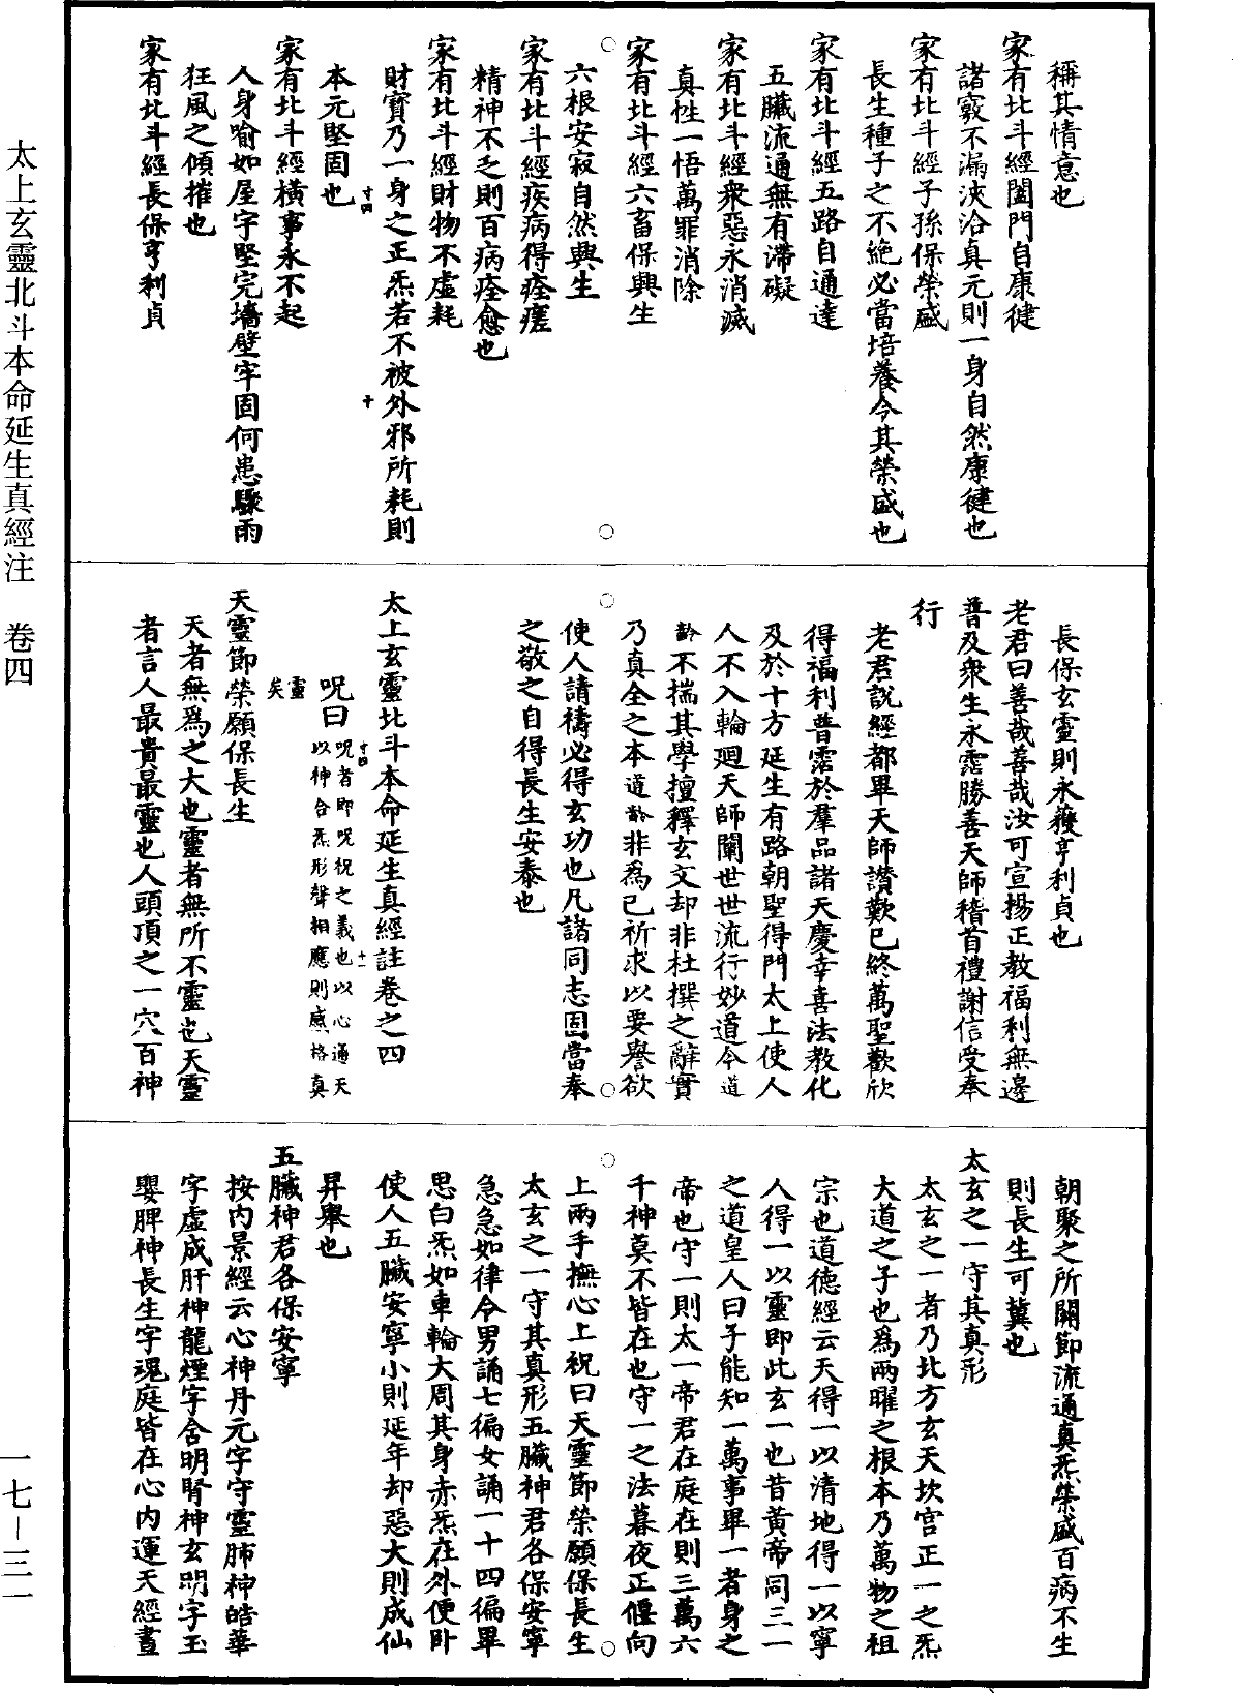 稱其情意也
家有北斗經闔門自康健
諸竅不漏浹洽真元則一身自然康健也
家有北斗經子孫保榮盛
長生種子之不絶必當培養令其榮盛也
家有北斗經五路自通達
五臟流通無有滯礙
家有北斗經衆惡永消滅
真性一悟萬罪消除
家有北斗經六畜保興生
六根安寂自然興生
家有北斗經疾病得痊瘥
精神不乏則百病痊愈也
家有北斗經財物不虛耗
財寶乃一身之正炁若不被外邪所耗則
本元堅固也
家有北斗經橫事永不起
人身喻如屋宇堅完墻壁牢固何患驟雨
狂風之傾摧也
家有北斗經長保亨利貞
十四
十
長保玄靈則永獲亨利貞也
老君曰善哉善哉汝可宣揚正教福利無邊
普及衆生永霑勝善天師稽首禮謝信受奉
行
老君說經都畢天師讚歎已終萬聖歡欣
得福利普霑於羣品諸天慶幸喜法教化
及於十方延生有路朝聖得門太上使人
人不入輪迴天師闡世世流行妙道今道
齡不揣其學擅釋玄文却非杜撰之辭實
乃真全之本道齡非爲已祈求以要譽欲
使人請禱必得玄功也凡諸同志固當奉
之敬之自得長生安泰也
太上玄靈北斗本命延生真經註卷之四
十四
十一
呪曰
呪者即呪祝之義也以心通天
以神合炁形聲相應則感格真
靈
矣
天靈節榮願保長生
天者無爲之大也靈者無所不靈也天靈
者言人最貴最靈也人頭頂之一穴百神
朝聚之所關節流通真炁榮盛百病不生
則長生可冀也
太玄之一守其真形
太玄之一者乃北方玄天坎宫正一之炁
大道之子也爲兩曜之根本乃萬物之祖
宗也道德經云天得一以清地得一以寧
人得一以靈即此玄一也昔黃帝問三一
之道皇人曰子能知一萬事畢一者身之
帝也守一則太一帝君在庭在則三萬六
千神莫不皆在也守一之法暮夜正偃向
上兩手撫心上祝曰天靈節榮願保長生
太玄之一守其真形五臟神君各保安寧
急急如律令男誦七徧女誦一十四徧畢
思白炁如車輪大周其身赤炁在外便卧
使人五臟安寧小則延年却惡大則成仙
昇舉也
五臟神君各保安寧
按内景經云心神丹元字守靈肺神皓華
字虛成肝神龍煙字含明腎神玄明字玉
嬰脾神長生字魂庭皆在心内運天經晝
太上玄靈北斗本命延生真經注　卷四
一七—三一